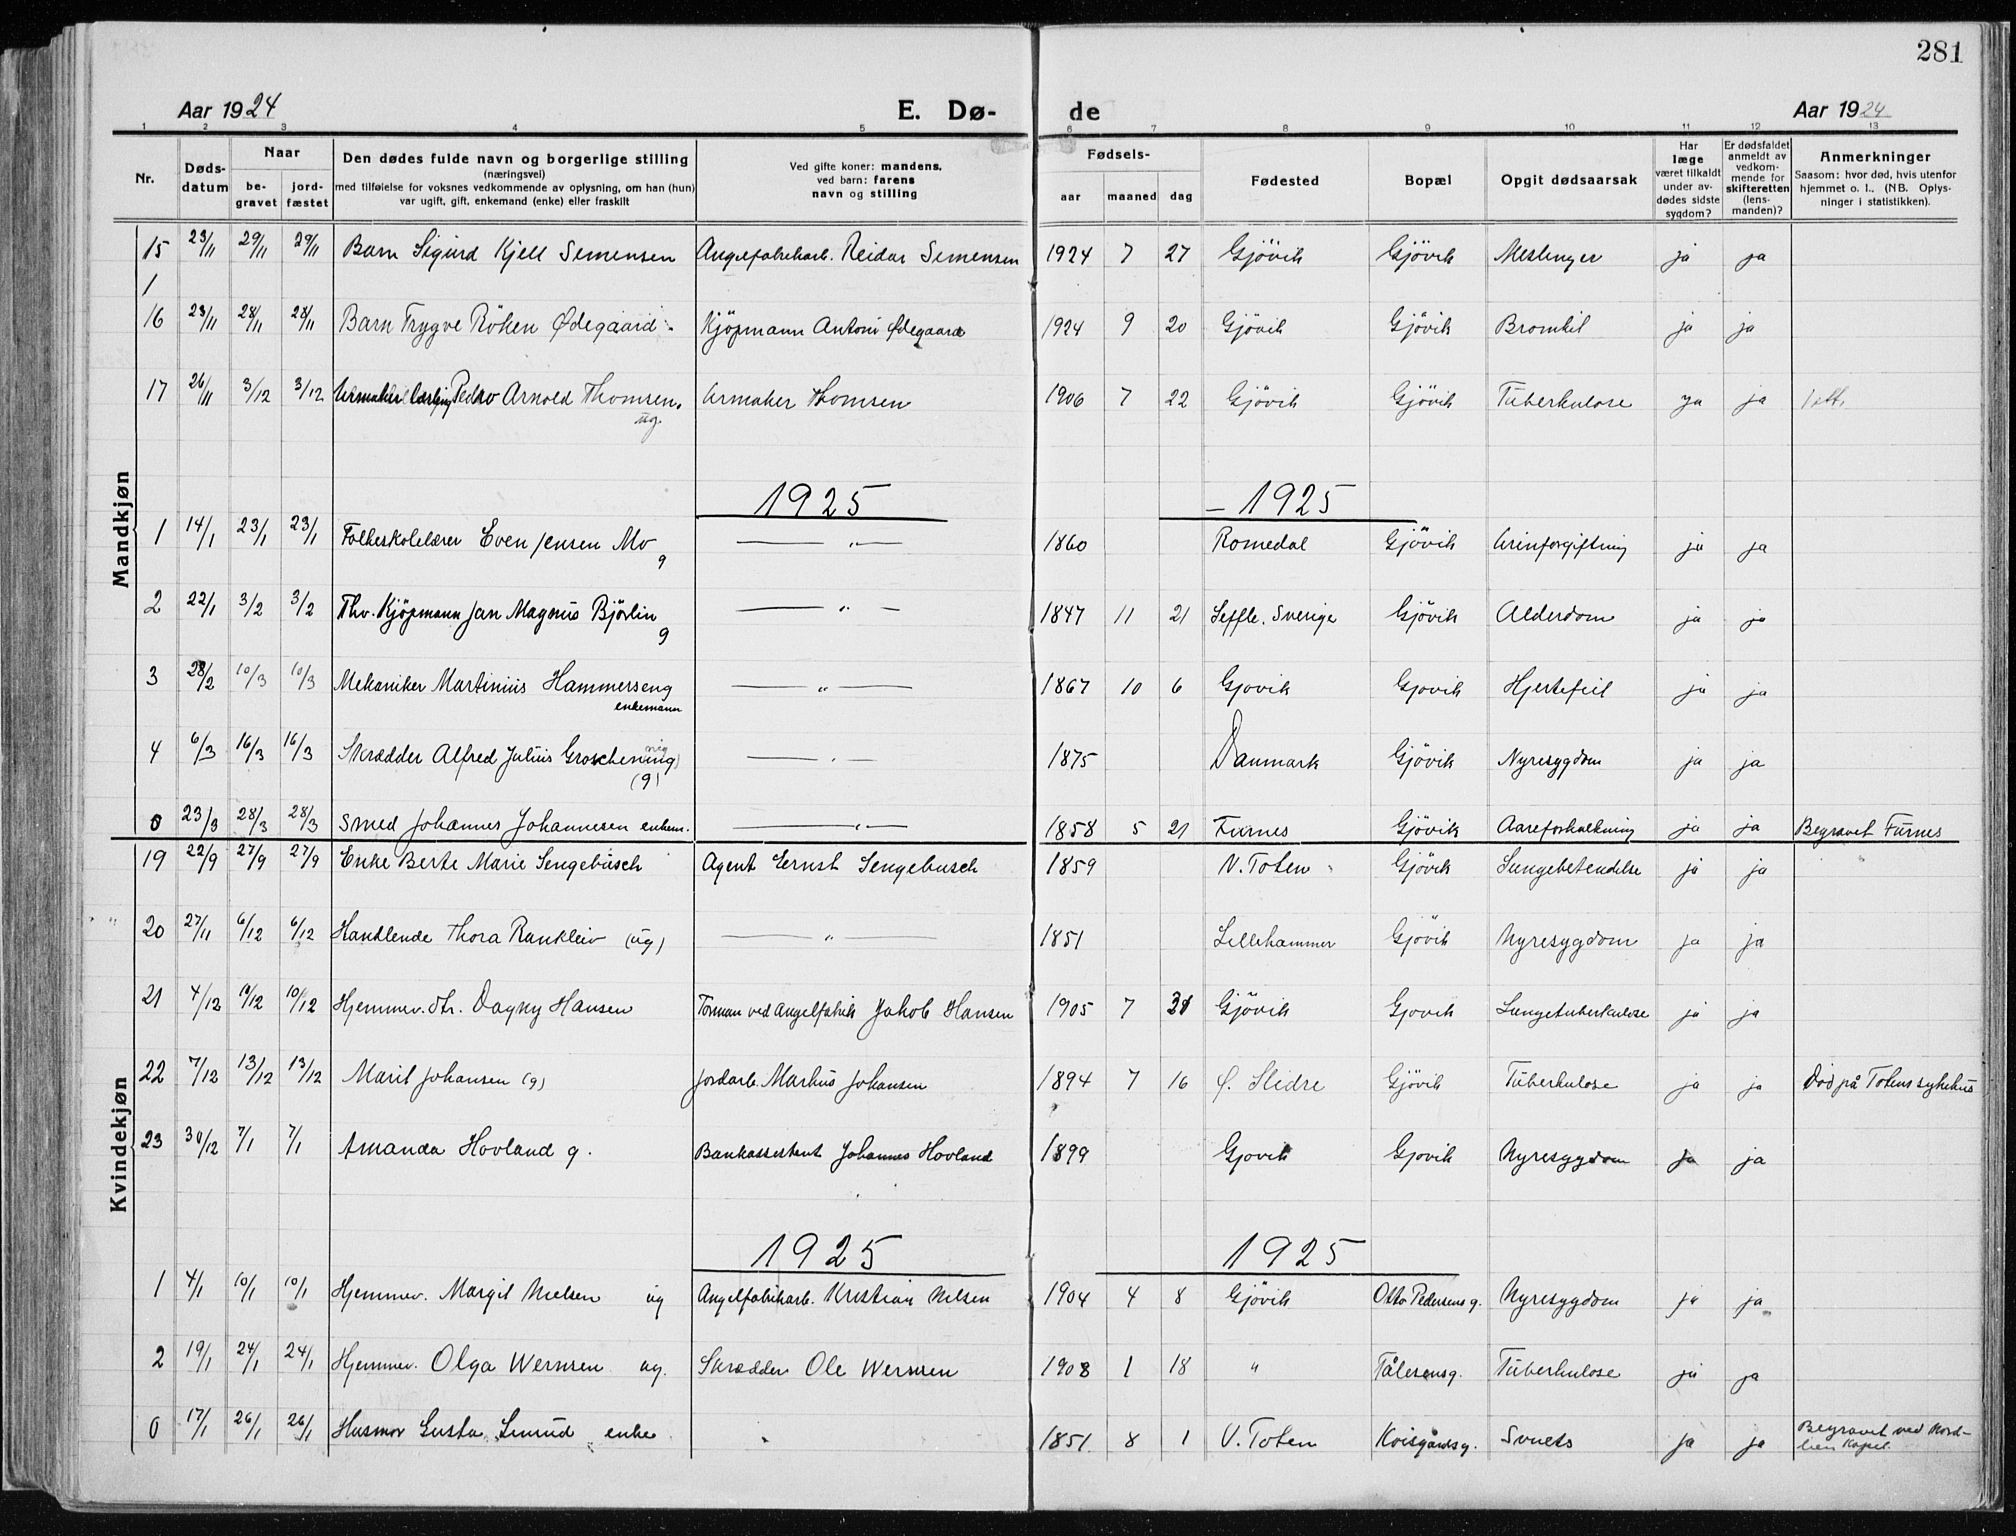 281
Aar 1924 E. Dø- de Aar 1924
1 2 3 4 5 6 7 8 9 10 11 12 13
Nr. Døds-datum Naar be-gravet jord-fæstet Den dødes fulde navn og borgerlige stilling (næringsvei) med tilføielse for voksnes vedkommende av oplysning, om han (hun) var ugift, gift, enkemand (enke) eller fraskilt Ved gifte koner: mandens, ved barn: farens navn og stilling Fødsels- aar maaned dag Fødested Bopæl Opgit dødsaarsak Har læge været tilkaldt under av-dødes sidste sygdom? Er dødsfaldet anmeldt av vedkom-mende for skifteretten (lens-manden)? Anmerkninger Saasom: hvor død, hvis utenfor hjemmet o. l., (NB. Oplys-ninger i statistikken).
Mandkjøn
15 23/11 29/11 29/11 Barn Sigurd Kjell Simensen Angelfabrikarb. Reidar Simensen 1924 7 27 Gjövik Gjövik Meslinger ja ja
1
16 23/11 28/11 28/11 Barn Trygve Röken Ødegaard. Kjöpmann Antoni Ødegaard 1924 9 20 Gjövik Gjövik Bronkit ja ja
17 26/11 3/12 3/12 Urmakerlærling Pedro Arnold Thomsen. ug. Urmaker Thomsen 1906 7 22 Gjövik Gjövik Tuberkulose ja ja
1925 – 1925
1 14/1 23/1 23/1 Folkeskolelærer Even Jensen Mo g — " — 1860 Romedal Gjövik Urinforgiftning ja ja
2 22/1 3/2 3/2 Fhv. Kjöpmann Jan Magnus Björlin g — " — 1847 11 21 Seffle. Sverige Gjövik Alderdom ja ja
3 28/2 10/3 10/3 Mekaniker Martinius Hammerseng enkemann — " — 1867 10 6 Gjovik Gjovik Hjertefeil ja ja
4 6/3 16/3 16/3 Skrædder Alfred Julius Groschening (g) — " — 1875 Danmark Gjövik Nyresygdom ja ja
0 23/3 28/3 28/3 Smed Johannes Johannesen enkem. — " — 1858 5 21 Furnes Gjövik Aareforkalkning ja ja Begravet Furnes
Kvindekjøn
19 22/9 27/9 27/9 Enke Berte Marie Sengebusch Agent Ernst Sengebusch 1859 V. Toten Gjövik Lungebetendelse ja ja
20 27/11 6/12 6/12 Handlende Thora Rankleiv (ug) — " — 1851 Lillehammer Gjövik Nyresygdom ja ja
21 4/12 10/12 10/12 Hjemmev. dtr. Dagny Hansen Forman ved Angelfabrik Jakob Hansen 1905 7 31 Gjövik Gjovik Lungetuberkulose ja ja
22 7/12 13/12 13/12 Marit Johansen (g) Jordarb. Markus Johansen 1894 7 16 Ø. Slidre Gjövik Tuberkulose ja ja Död på Totens sykehus
23 30/12 7/1 7/1 Amanda Hovland g. Bankassistent Johannes Hovland 1899 Gjovik Gjovik Nyresygdom ja ja
1925 1925
1 4/1 10/1 10/1 Hjemmev. Margit Nielsen ug Angelfabrikarb. Kristian Nilsen 1904 4 8 Gjövik Otto Pedersens g. Nyresygdom ja ja
2 19/1 24/1 24/1 Hjemmev. Olga Wernsen ug. Skrædder Ole Wernsen 1908 1 18 " Tålesensg. Tuberkulose ja ja
0 17/1 26/1 26/1 Husmor Gusta Smud enke 1851 8 1 V. Toten Kvisgårdsg. Svuets ja ja Begravet ved Nord-
lien Kapel.